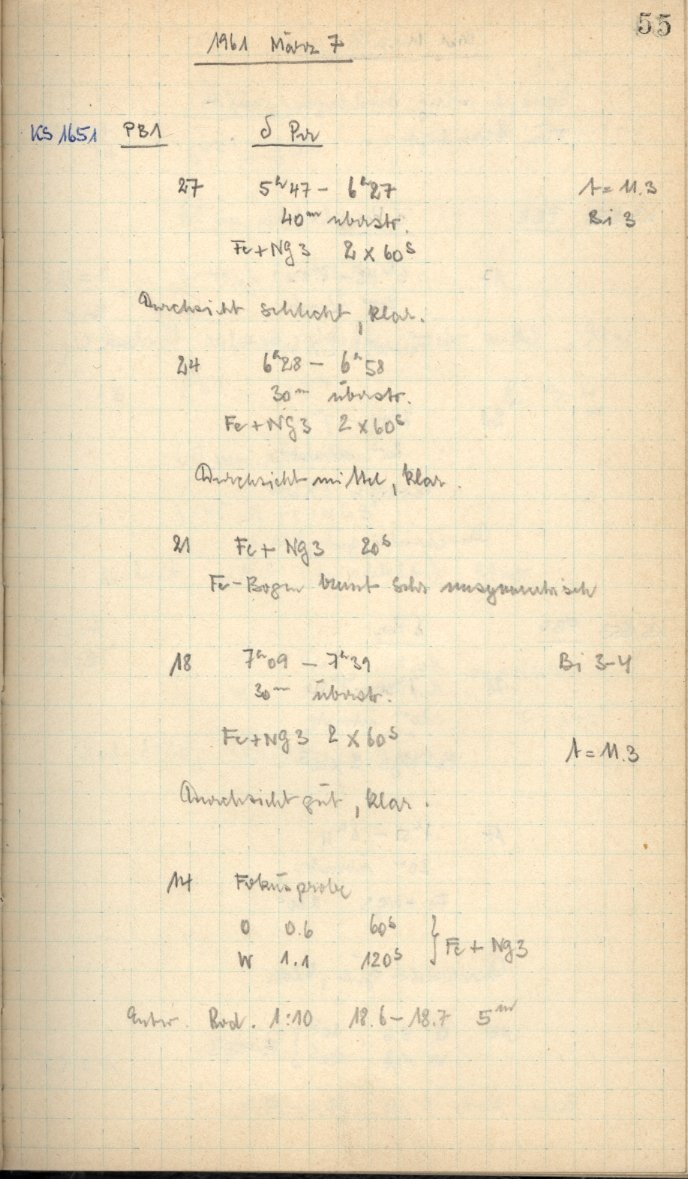 55
1961 März 7
KS 1651 PB1 δ Per
27 5ʰ47 – 6ʰ27 t = 11.3
40ᵐ überstr. Bi 3
Fe+Ng3 2 x 60ˢ
Durchsicht schlecht, klar.
24 6ʰ28 – 6ʰ58
30ᵐ überstr.
Fe+Ng3 2x60ˢ
Durchsicht mittel, klar.
21 Fe+Ng3 20ˢ
Fe-Bogen brennt sehr unsymmetrisch
18 7ʰ09 – 7ʰ39 Bi 3-4
30ᵐ überstr.
Fe+Ng3 2 x 60ˢ
t = 11.3
Durchsicht gut, klar.
14 Fokusprobe
O 0.6 60ˢ
W 1.1 120ˢ } Fe + Ng3
Entw. Rod. 1:10 18.6–18.7 5ᵐ